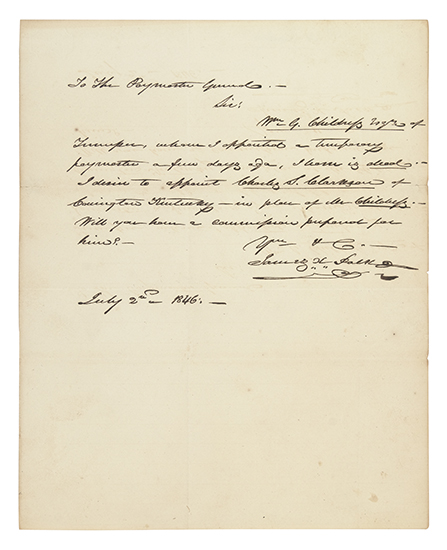 To The Paymaster General. —
Sir:
Wm G. Childress Esqr of
Tennessee, whom I appointed a temporary
paymaster a few days ago, I learn is dead. —
I desire to appoint Charles S. Clarkson of
Covington Kentucky — in place of Mr Childress. —
Will you have a commission prepared for
him? —
Yrs &C. —
James K Polk
July 2nd 1846. —